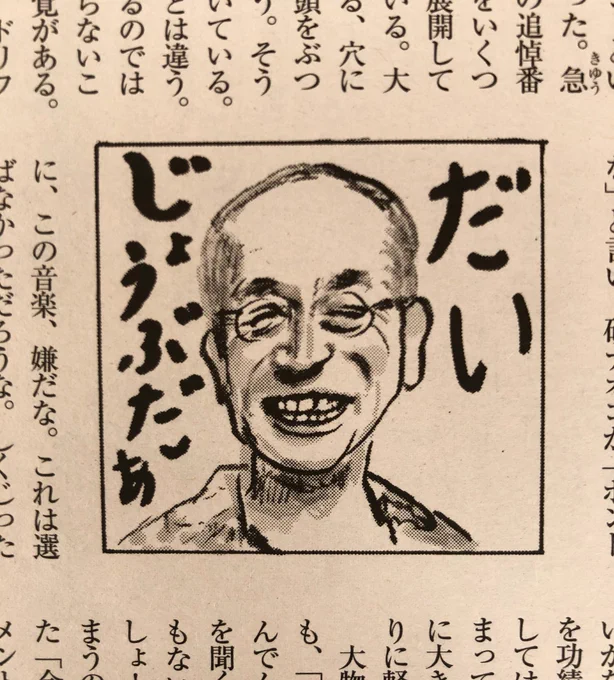 った。急
きゅう
の追悼番
をいくつ
展開して
いる。大
る、穴に
頭をぶつ
う。そう
いている。
とは違う。
るのでは
らないこ
覚がある。
ドリフ
だい
じょうぶだぁ
に、この音楽、嫌だな。これは選
ばなかっただろうな。しくじった
を功績
しては
まって
に大き
りに軽
大物
も、「
んでん
を聞く
もない
しょ
まうの
た「
メント